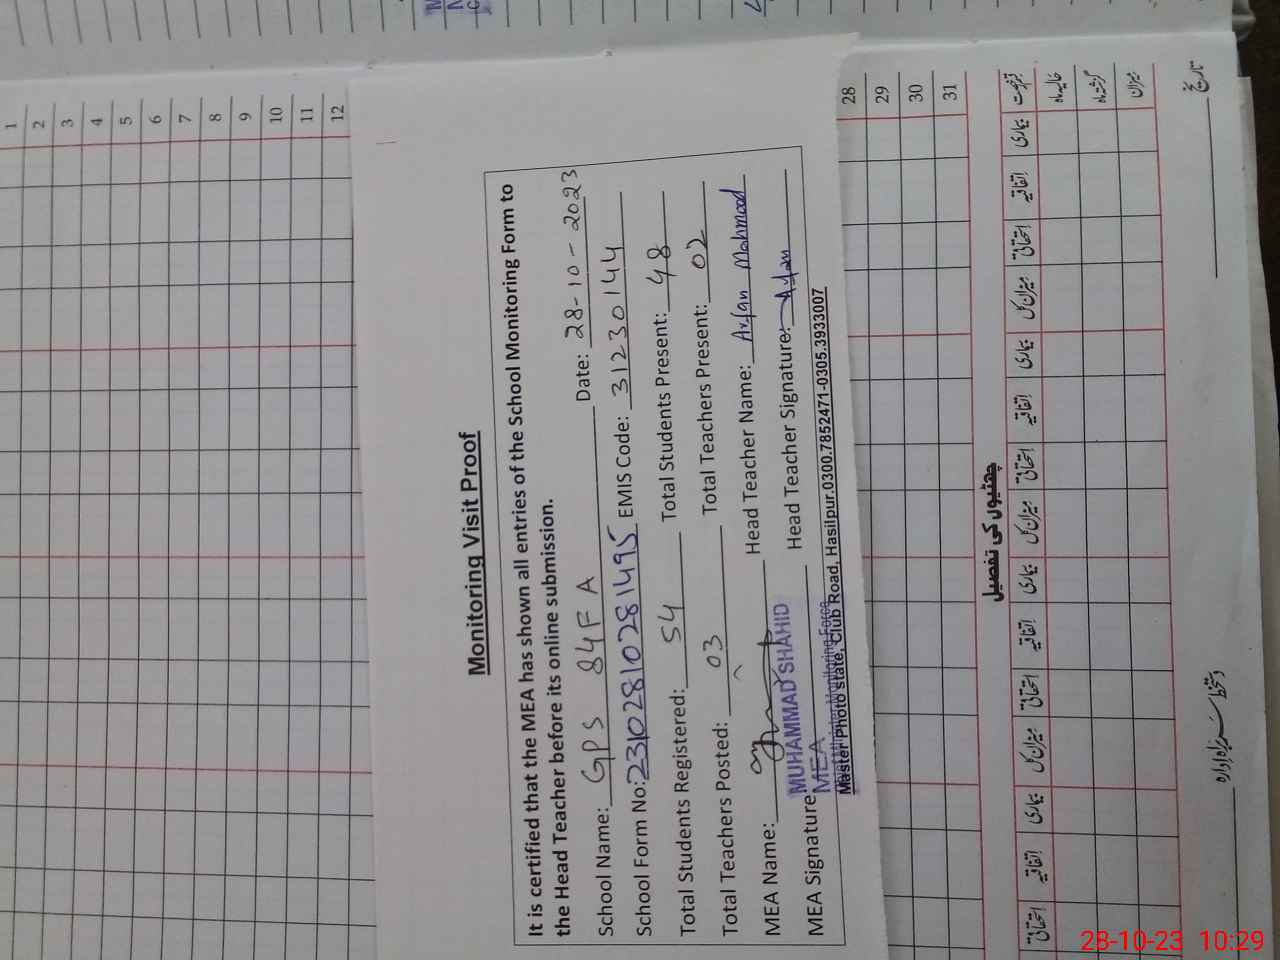 1
2
3
4
5
6
7
8
9
10
11
12
Monitoring Visit Proof
It is certified that the MEA has shown all entries of the School Monitoring Form to
the Head Teacher before its online submission.
School Name: GPS 84F A Date: 28-10-2023
School Form No: 2310281028 1495 EMIS Code: 31230144
Total Students Registered: 54 Total Students Present: 48
Total Teachers Posted: 03 Total Teachers Present: 02
MEA Name: Head Teacher Name: Arfan Mahmood
MUHAMMAD SHAHID
MEA Signature Head Teacher Signature: Arfan
MEA
Master Photo state, Club Road, Hasilpur.0300.7852471-0305.3933007
28
29
30
31
چھٹیوں کی تفصیل
بیماری اتفاقیہ استحقاقی میزان کل بیماری اتفاقیہ استحقاقی میزان کل بیماری اتفاقیہ استحقاقی میزان کل بیماری اتفاقیہ استحقاقی
حالیہ ماہ
گزشتہ ماہ
میزان
تاریخ دستخط سربراہ ادارہ
28-10-23 10:29